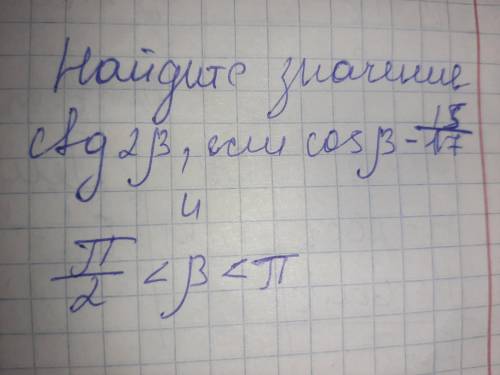 Найдите значение
ctg 2β, если cos β - 15/17
и
π/2 < β < π